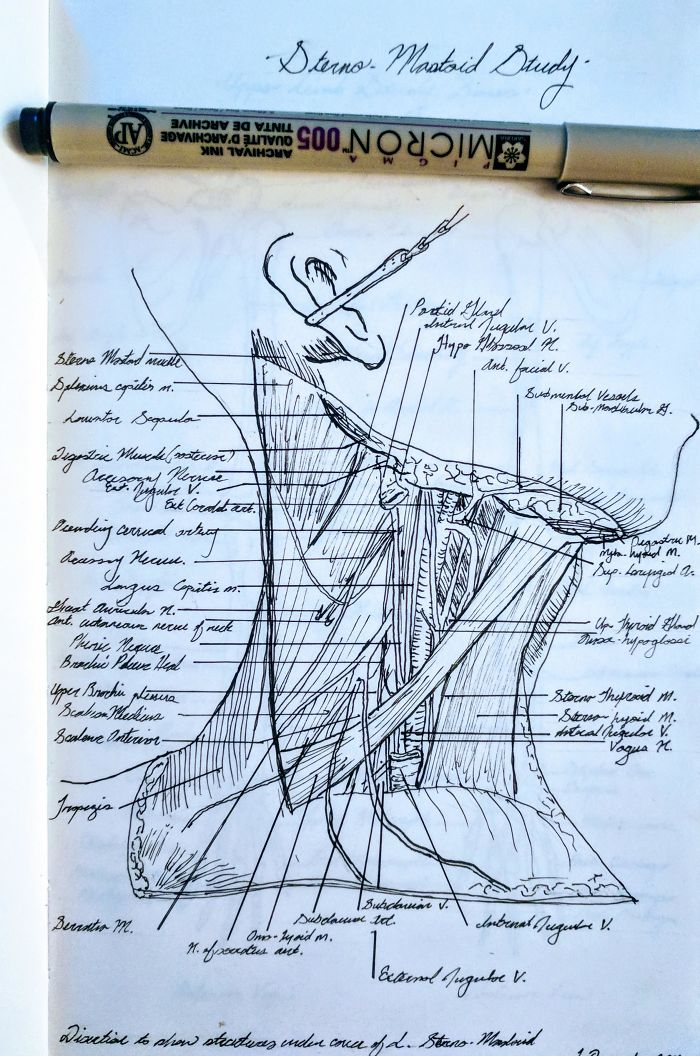 - Sterno-Mastoid Study -
PIGMA
MICRON™ 005
ARCHIVAL INK
QUALITÉ D'ARCHIVAGE
TINTA DE ARCHIVE
AP
Parotid Gland
Internal Jugular V.
Hypo Glossal N.
Ant. facial V.
Submental Vessels
Sub-Mandibular G.
Sterno Mastoid muscle
Splenius capitis m.
Levator Scapula
Digastric Muscle (posterior)
Accessory Nerve
Ext. Jugular V.
Ext Carotid art.
cervical artery
Accessory Nerve.
Longus Capitis m.
Great Auricular N.
Ant. cutaneous nerve of neck
Phrenic Nerve
Brachii
Upper Brachii plexus
Scalenus Medius
Scalene Anterior
Trapezis
Digastric M.
Mylo-hyoid M.
Sup. Laryngeal
Thyroid Gland
Ansa-hypoglossi
Sterno Thyroid M.
Sterno-hyoid M.
Internal Jugular V.
Vagus N.
Serratus M.
N. of serratus ant.
Omo-hyoid m.
Subclavian Art.
Subclavian V.
Internal Jugular V.
External Jugular V.
Disection to show structures under cover of L. Sterno-Mastoid